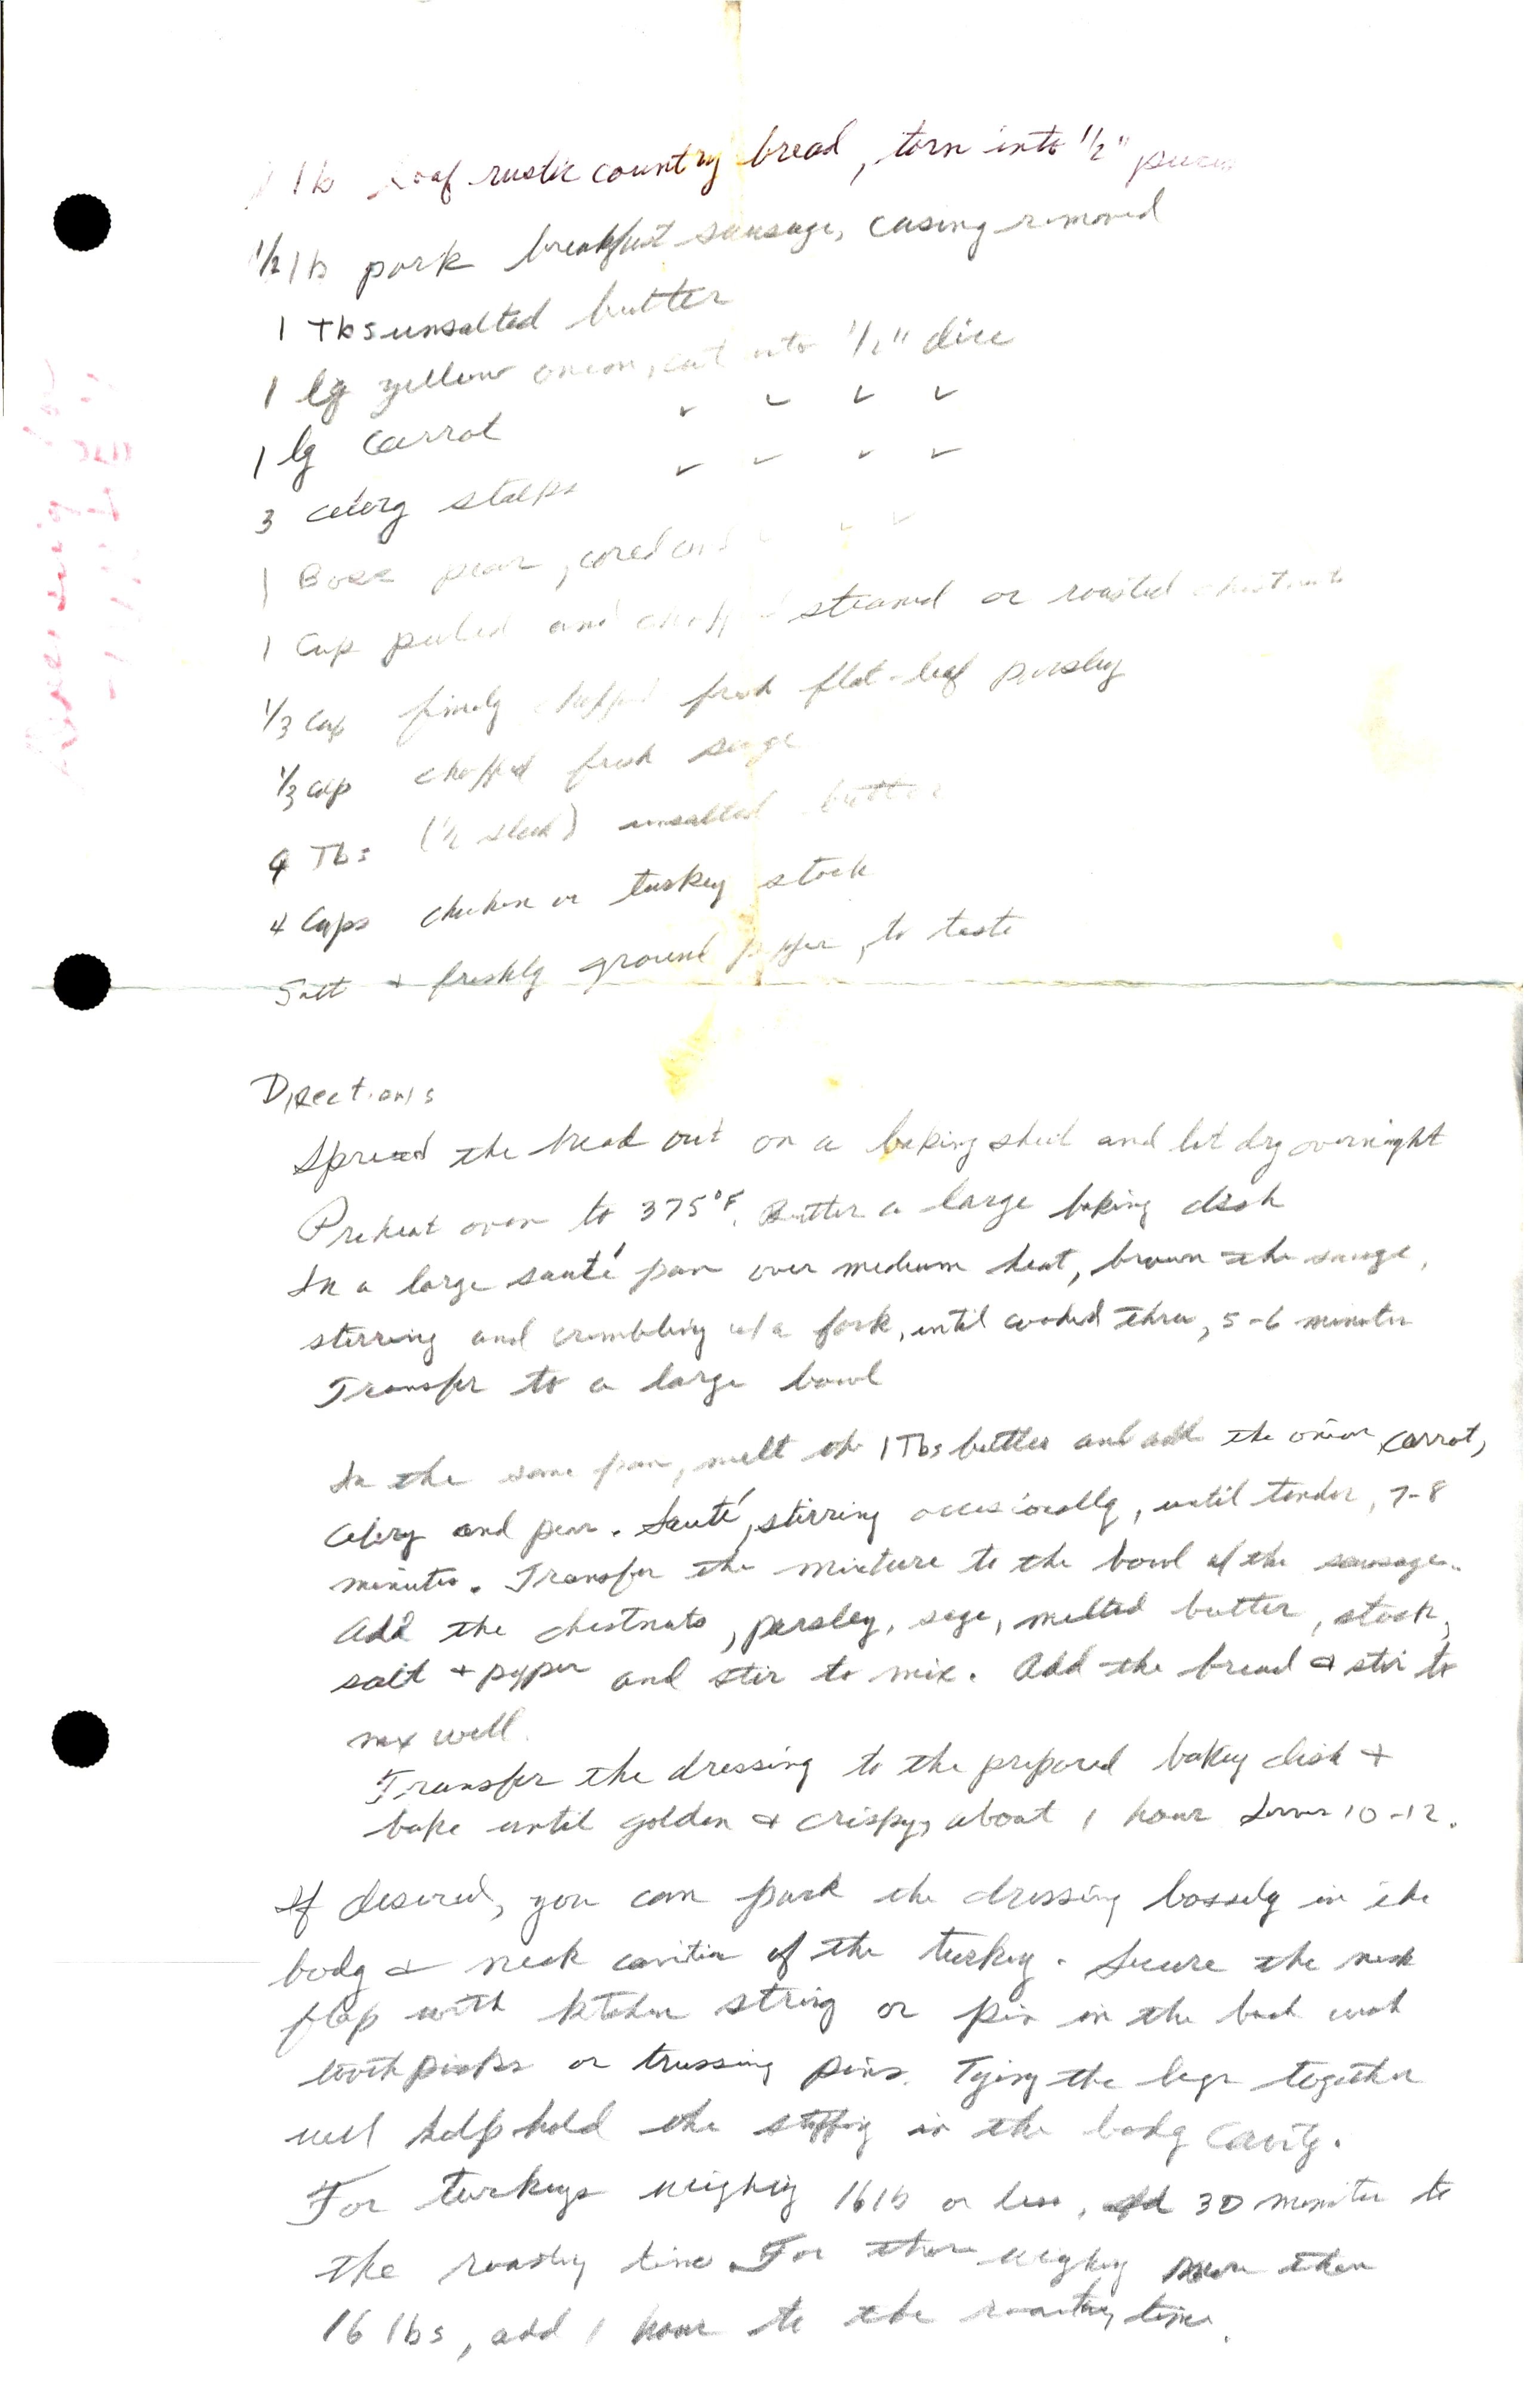 1 lb loaf rustic country bread, torn into 1/2" pieces
1/2 lb pork breakfast sausage, casing removed
1 Tbs unsalted butter
1 lg yellow onion, cut into 1/2" dice
1 lg carrot ✓ ✓ ✓ ✓
3 celery stalks ✓ ✓ ✓ ✓
1 Bosc pear, cored and ✓ ✓ ✓
1 Cup peeled and chopped steamed or roasted chestnuts
1/3 Cup finely chopped fresh flat-leaf parsley
1/3 cup chopped fresh sage
4 Tbs (1/2 stick) unsalted butter
4 Cups chicken or turkey stock
Salt + freshly ground pepper, to taste
Directions
Spread the bread out on a baking sheet and let dry overnight
Preheat oven to 375°F. Butter a large baking dish
In a large sauté pan over medium heat, brown the sausge,
stirring and crumbling w/a fork, until cooked thru, 5-6 minutes
Transfer to a large bowl
In the same pan, melt the 1 Tbs butter and add the onion, carrot,
celery and pear. Sauté, stirring occasionally, until tender, 7-8
minutes. Transfer the mixture to the bowl w/ the sausage.
Add the chestnuts, parsley, sage, melted butter, stock,
salt + pepper and stir to mix. Add the bread + stir to
mix well.
Transfer the dressing to the prepared baking dish +
bake until golden + crispy, about 1 hour Serves 10-12.
If desired, you can pack the dressing loosely in the
body + neck cavities of the turkey. Secure the neck
flap with kitchen string or pin in the back with
toothpicks or trussing pins. Tying the legs together
will help hold the stuffing in the body cavity.
For turkeys weighing 16 lb or less, add 30 minutes to
the roasting time. For those weighing more than
16 lbs, add 1 hour to the roasting time.